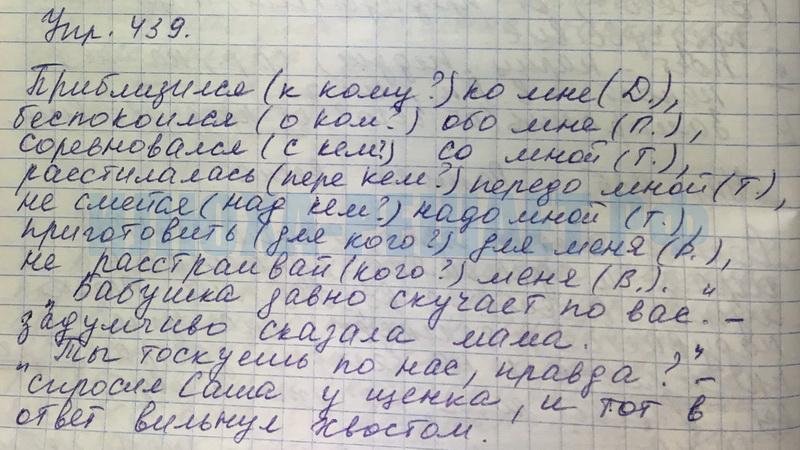 Упр. 439.
Приблизился (к кому?) ко мне (Д.),
беспокоился (о ком?) обо мне (П.),
соревновался (с кем?) со мной (Т.),
расстилалась (пере кем?) передо мной (Т.),
не смейся (над кем?) надо мной (Т.),
приготовить (для кого?) для меня (Р.),
не расстраивай (кого?) меня (В.).
„Бабушка давно скучает по вас." –
задумчиво сказала мама.
„Ты тоскуешь по нас, правда?" –
спросил Саша у щенка, и тот в
ответ вильнул хвостом.